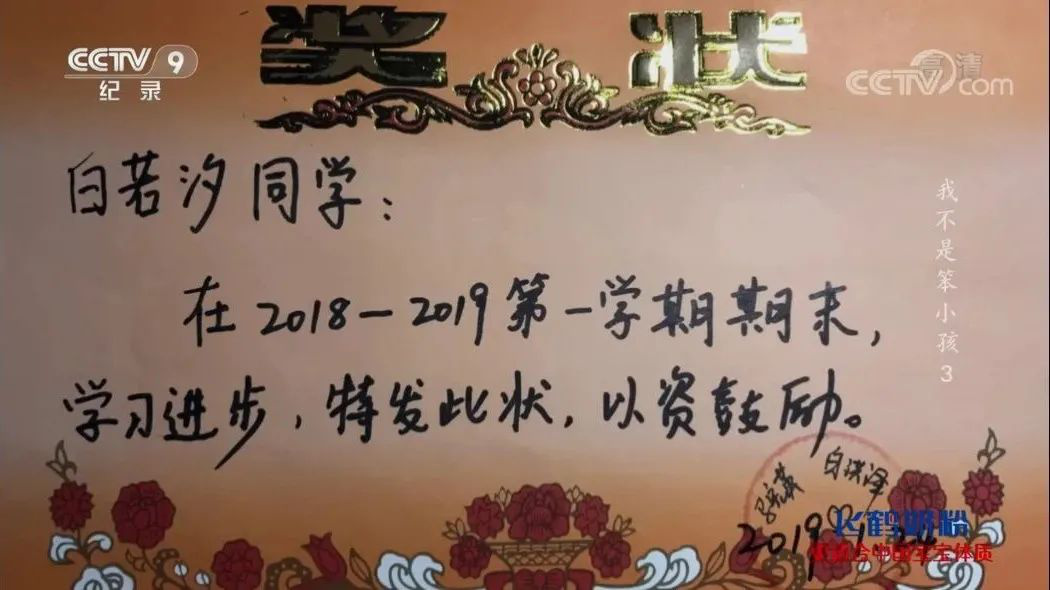 CCTV 9
纪录
奖状
高清
CCTV.com
白若汐同学：
在2018—2019第一学期期末，
学习进步，特发此状，以资鼓励。
我不是笨小孩3
白洪泽
飞鹤奶粉
更适合中国宝宝体质